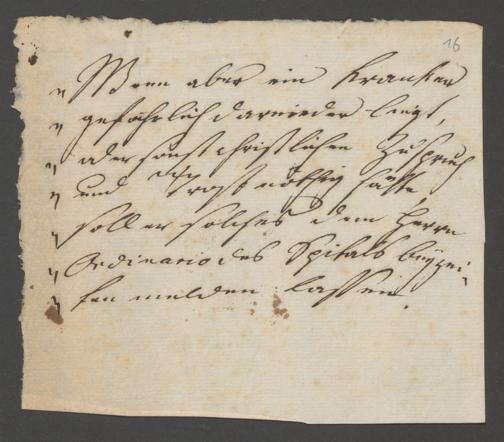 16
" Wenn aber ein Kranker
" gefährlich darnieder liegt,
" oder sonst christlichen Zuspruch
" und Trost nöthig hätte,
" soll er solches dem Herrn
" Ordinario des Spitals beyzei-
" ten melden lassen.